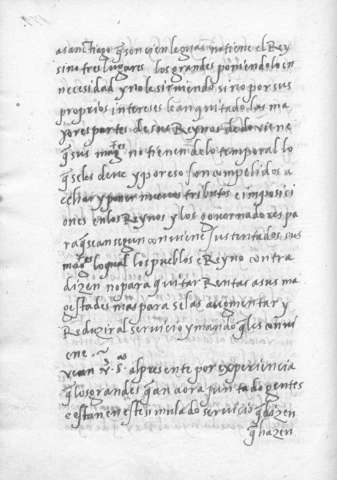 a sanctiago q̃ son cien leguas no tiene el Rey
sino tres lugares los grandes poniendolo en
necesidad y no le sirviendo sino por sus
proprios intereses le an quitado las ma
yores partes de sus Reynos de do viene
q̃ sus mag.des no tienen de lo temporal lo
q̃ se les deve y por eso son compelidos a
echar y poner nuevos tributos e imposici
ones en los Reynos y los governadores pa
ra q̃ sean segun conviene sustentados sus
mag.des lo qual los pueblos e Reyno contra
dizen no para quitar Rentas a sus ma
gestades mas para se las augmentar y
Reduzir al servicio y mando q̃ les convi
ene
vean v. s.as al presente por experiencia
q̃ los grandes q̃ an aora juntado gentes
e estan en este simulado servicio q̃ dizen
q̃ hazen